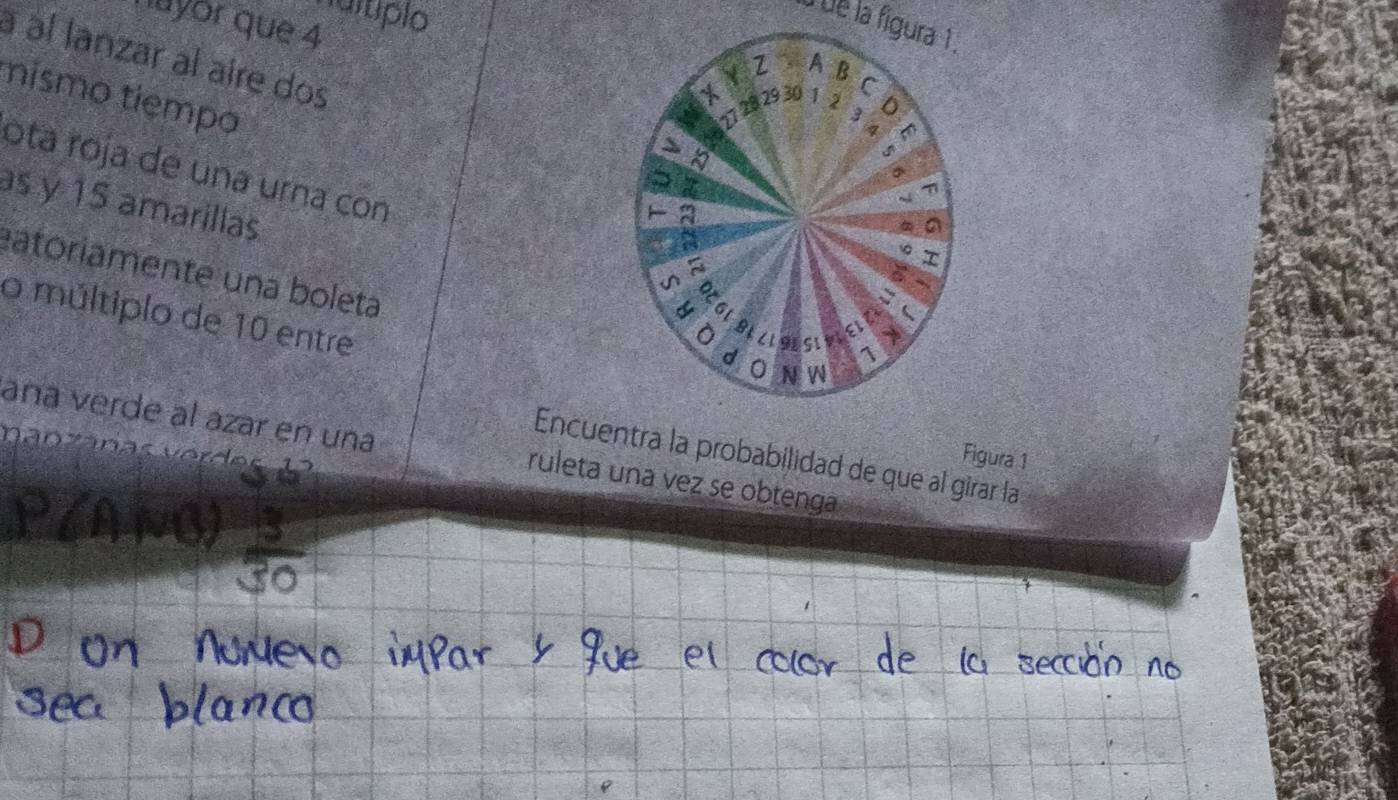 ayor que 4
últiplo
a al lanzar al aire dos
mismo tiempo
lota roja de una urna con
as y 15 amarillas
eatoriamente una boleta
o múltiplo de 10 entre
ana verde al azar en una
manzanas verdes
de la figura 1.
A B C D E F G H I J K L M N O P Q R S T U V X Y Z
1 2 3 4 5 6 7 8 9 10 11 12 13 14 15 16 17 18 19 20 21 22 23 24 25 27 28 29 30
Figura 1
Encuentra la probabilidad de que al girar la
ruleta una vez se obtenga
3
30
D on número impar y que el color de la sección no
sea blanco